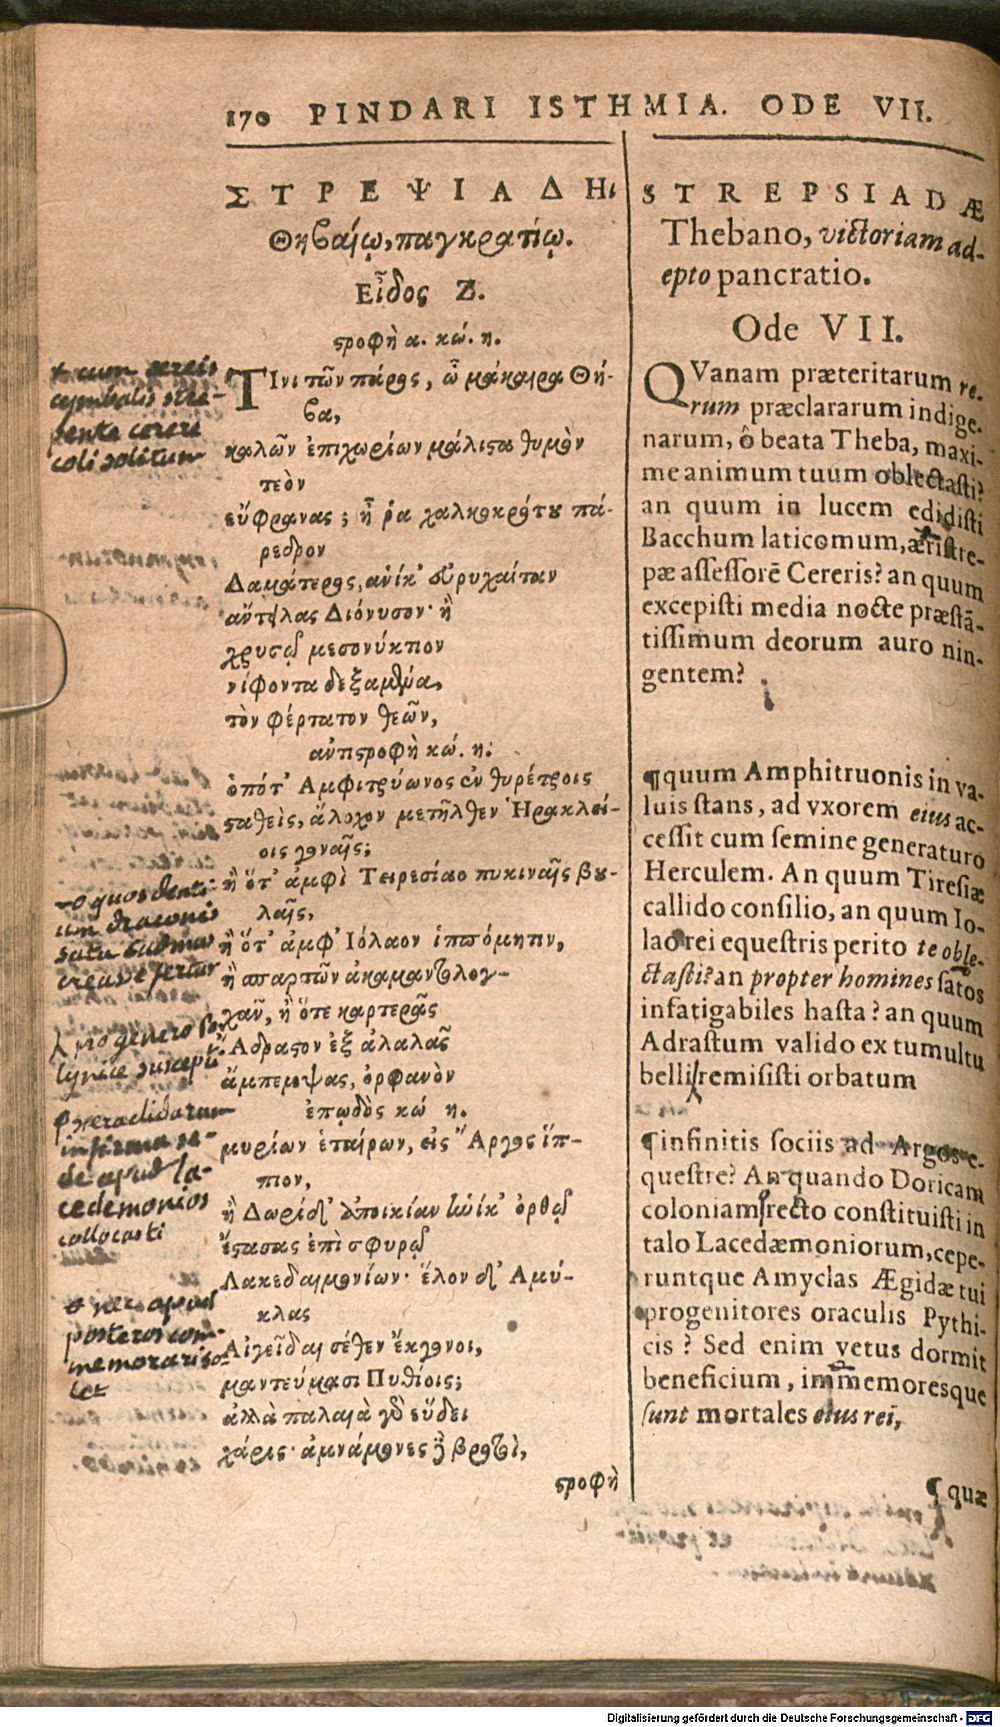 170 PINDARI ISTHMIA. ODE VII.
ΣΤΡΕΨΙΑΔΗι
Θηβαίῳ, παγκρατίῳ.
Εἶδος Ζ.
ϛροφὴ α. κώ. η.
ΤΙνι τῶν πάρος, ὦ μάκαιρα Θή-
βα,
καλῶν ἐπιχωρίων μάλιϛα θυμὸν
τεὸν
εὔφρανας; ἦ ῥα χαλκοκρότου πά-
ρεδρον
Δαμάτερος, ἁνίκ' εὐρυχαίταν
αὔτειλας Διόνυσον· ἢ
χρυσῷ μεσονύκτιον
νίφοντα δεξαμένα,
τὸν φέρτατον θεῶν,
αὐτιϛροφὴ κώ. η.
ὁπότ' Αμφιτρύωνος ἐν θυρέτροις
ϛαθεὶς, ἄλοχον μετῆλθεν Ἡρακλεί-
οις γοναῖς;
ἢ ὅτ' ἀμφὶ Τειρεσίαο πυκιναῖς βου-
λαῖς,
ἢ ὅτ' ἀμφ' Ιόλαον ἱππόμητιν,
ἢ σπαρτῶν ἀκαμαντολογ-
χᾶν, ἢ ὅτε καρτερᾶς
Ἄδραϛον ἐξ ἀλαλᾶς
ἄμπεμψας, ὀρφανὸν
ἐπῳδὸς κώ η.
μυρίων ἑταίρων, εἰς Ἄργος ἵπ-
πιον,
ἢ Δωρίδ' ἀποικίαν οὕνεκ' ὀρθῷ
ἔϛασας ἐπὶ σφυρῷ
Λακεδαιμονίων· ἕλον δ' Αμύ-
κλας
Αἰγεῖδαι σέθεν ἔκγονοι,
μαντεύμασι Πυθίοις;
ἀλλὰ παλαιὰ γὸ εὕδει
χάρις· ἀμνάμονες ἢ βροτοὶ,
ϛροφὴ
STREPSIADÆ
Thebano, victoriam ad-
epto pancratio.
Ode VII.
QVanam præteritarum re-
rum præclararum indige-
narum, ô beata Theba, maxi-
me animum tuum oblectasti?
an quum in lucem edidisti
Bacchum laticomum, æristre-
pæ assessorē Cereris? an quum
excepisti media nocte præstā-
tissimum deorum auro nin-
gentem?
¶quum Amphitruonis in va-
luis stans, ad vxorem eius ac-
cessit cum semine generaturo
Herculem. An quum Tiresiæ
callido consilio, an quum Io-
lao rei equestris perito te oble-
ctasti? an propter homines satos
infatigabiles hasta? an quum
Adrastum valido ex tumultu
belli remisisti orbatum
¶infinitis sociis ad Argos e-
questre? An quando Doricam
coloniam recto constituisti in
talo Lacedæmoniorum, cepe-
runtque Amyclas Ægidæ tui
progenitores oraculis Pythi-
cis? Sed enim vetus dormit
beneficium, immemoresque
sunt mortales eius rei,
¶ quæ
cum aereis
cymbalis stre-
pente cereri
coli solitum
quos denti-
um draconis
satu cadmus
creasse fertur
genero
infirma se-
de apud la-
cedemonios
collocasti
nec apud
posteros com-
memorari so-
let